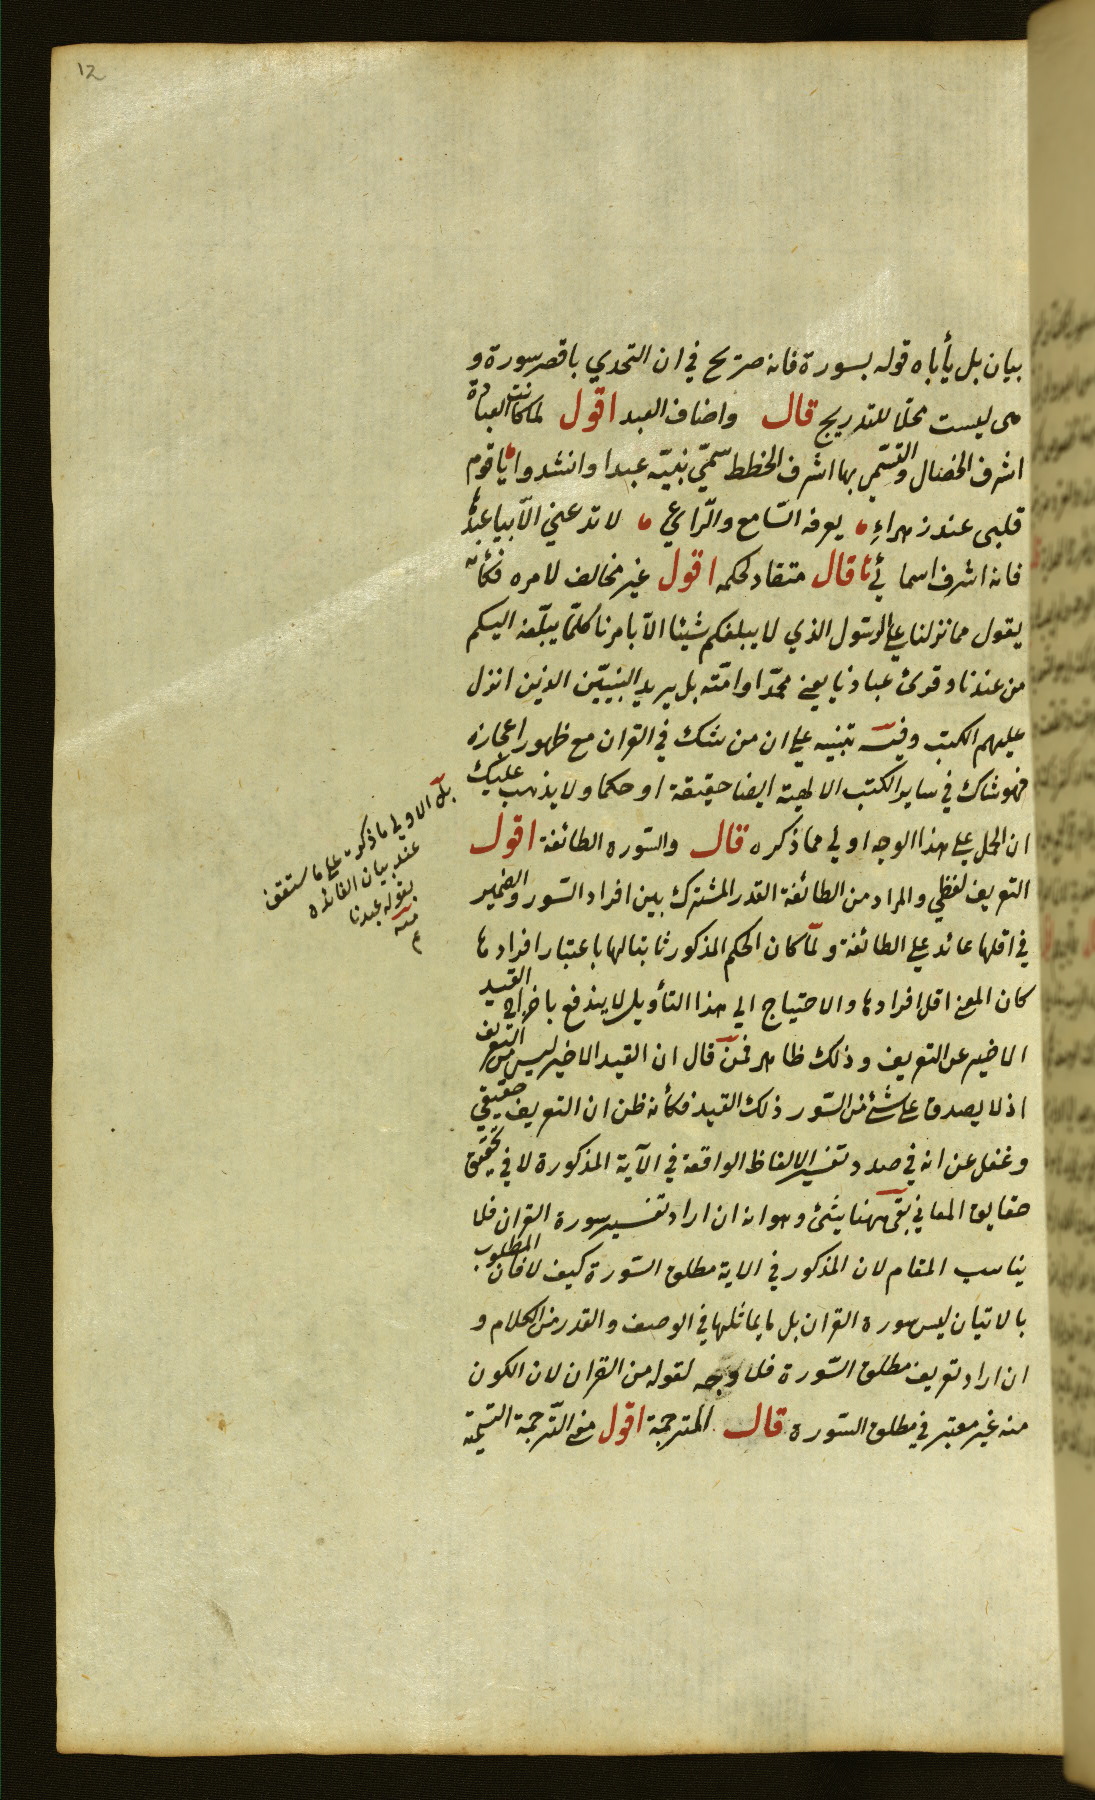 12
بيان بل يأباه قوله بسورة فانه صريح في ان التحدي باقصر سورة و
هى ليست محلا للتدريج قال واضاف العبد اقول لما كانت العبادة
اشرف الخصال والتسمي بها اشرف الخطط سمّي نبيّه عبدا وانشدوا يا قوم
قلبى عند زهراءِ يعرفه السّامع والرّاءي لا تدعني الّا بيا عبدها
فانه اشرف اسمائي قال منقاد لحكمه اقول غير مخالف لامره فكأنه
يقول مما نزلنا على الرسول الذي لا يبلغكم شيئا الا بامرنا كلّما يبلّغه اليكم
من عندنا وقرئ عبادنا يعني محمّدا وامّته بل يريد النبيّين الذين انزل
عليهم الكتب وفيه تنبيه على ان من شك في القران مع ظهور اعجازه
فهو شاك في ساير الكتب الالهية ايضا حقيقة او حكما ولا يذهب عليك
ان الحمل على هذا الوجه اولى مما ذكره قال والسّورة الطائفة اقول
التعريف لفظي والمراد من الطائفة القدر المشترك بين افراد السّور والضمير
في اقلها عائد على الطائفة ولمّا كان الحكم المذكور ثابتا لها باعتبار افرادها
كان المعنى اقل افرادها والاحتياج الى هذا التأويل لا يندفع باخراج القيد
الاخير عن التعريف وذلك ظاهر فمن قال ان القيد الاخير ليس من التعريف
اذ لا يصدق على شئ من السّور ذلك القيد فكأنه ظن ان التعريف حقيقي
وغفل عن انه في صدد تفسير الالفاظ الواقعة في الآية المذكورة لا في تحقيق
حقايق المعاني بقي ههنا شئ وهو انه ان اراد تفسير سورة القران فلا
يناسب المقام لان المذكور في الاية مطلق السّورة كيف لا فان المطلوب
بالاتيان ليس سورة القران بل ما يماثلها في الوصف والقدر من الكلام و
ان اراد تعريف مطلق السّورة فلا وجه لقوله من القران لان الكون
منه غير معتبر في مطلق السّورة قال المترجمة اقول معنى التّرجمة التسمية
بل الاولى ما ذكره على ما ستقف
عند بيان الفائدة
بقوله عبدنا
منه
م